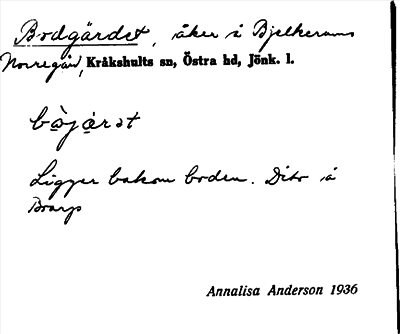 Bodgärdet, åker å Bjelkerums
Norregård, Kråkshults sn, Östra hd, Jönk. l.
Ligger bakom boden. Dito å
Boarp
Annalisa Anderson 1936